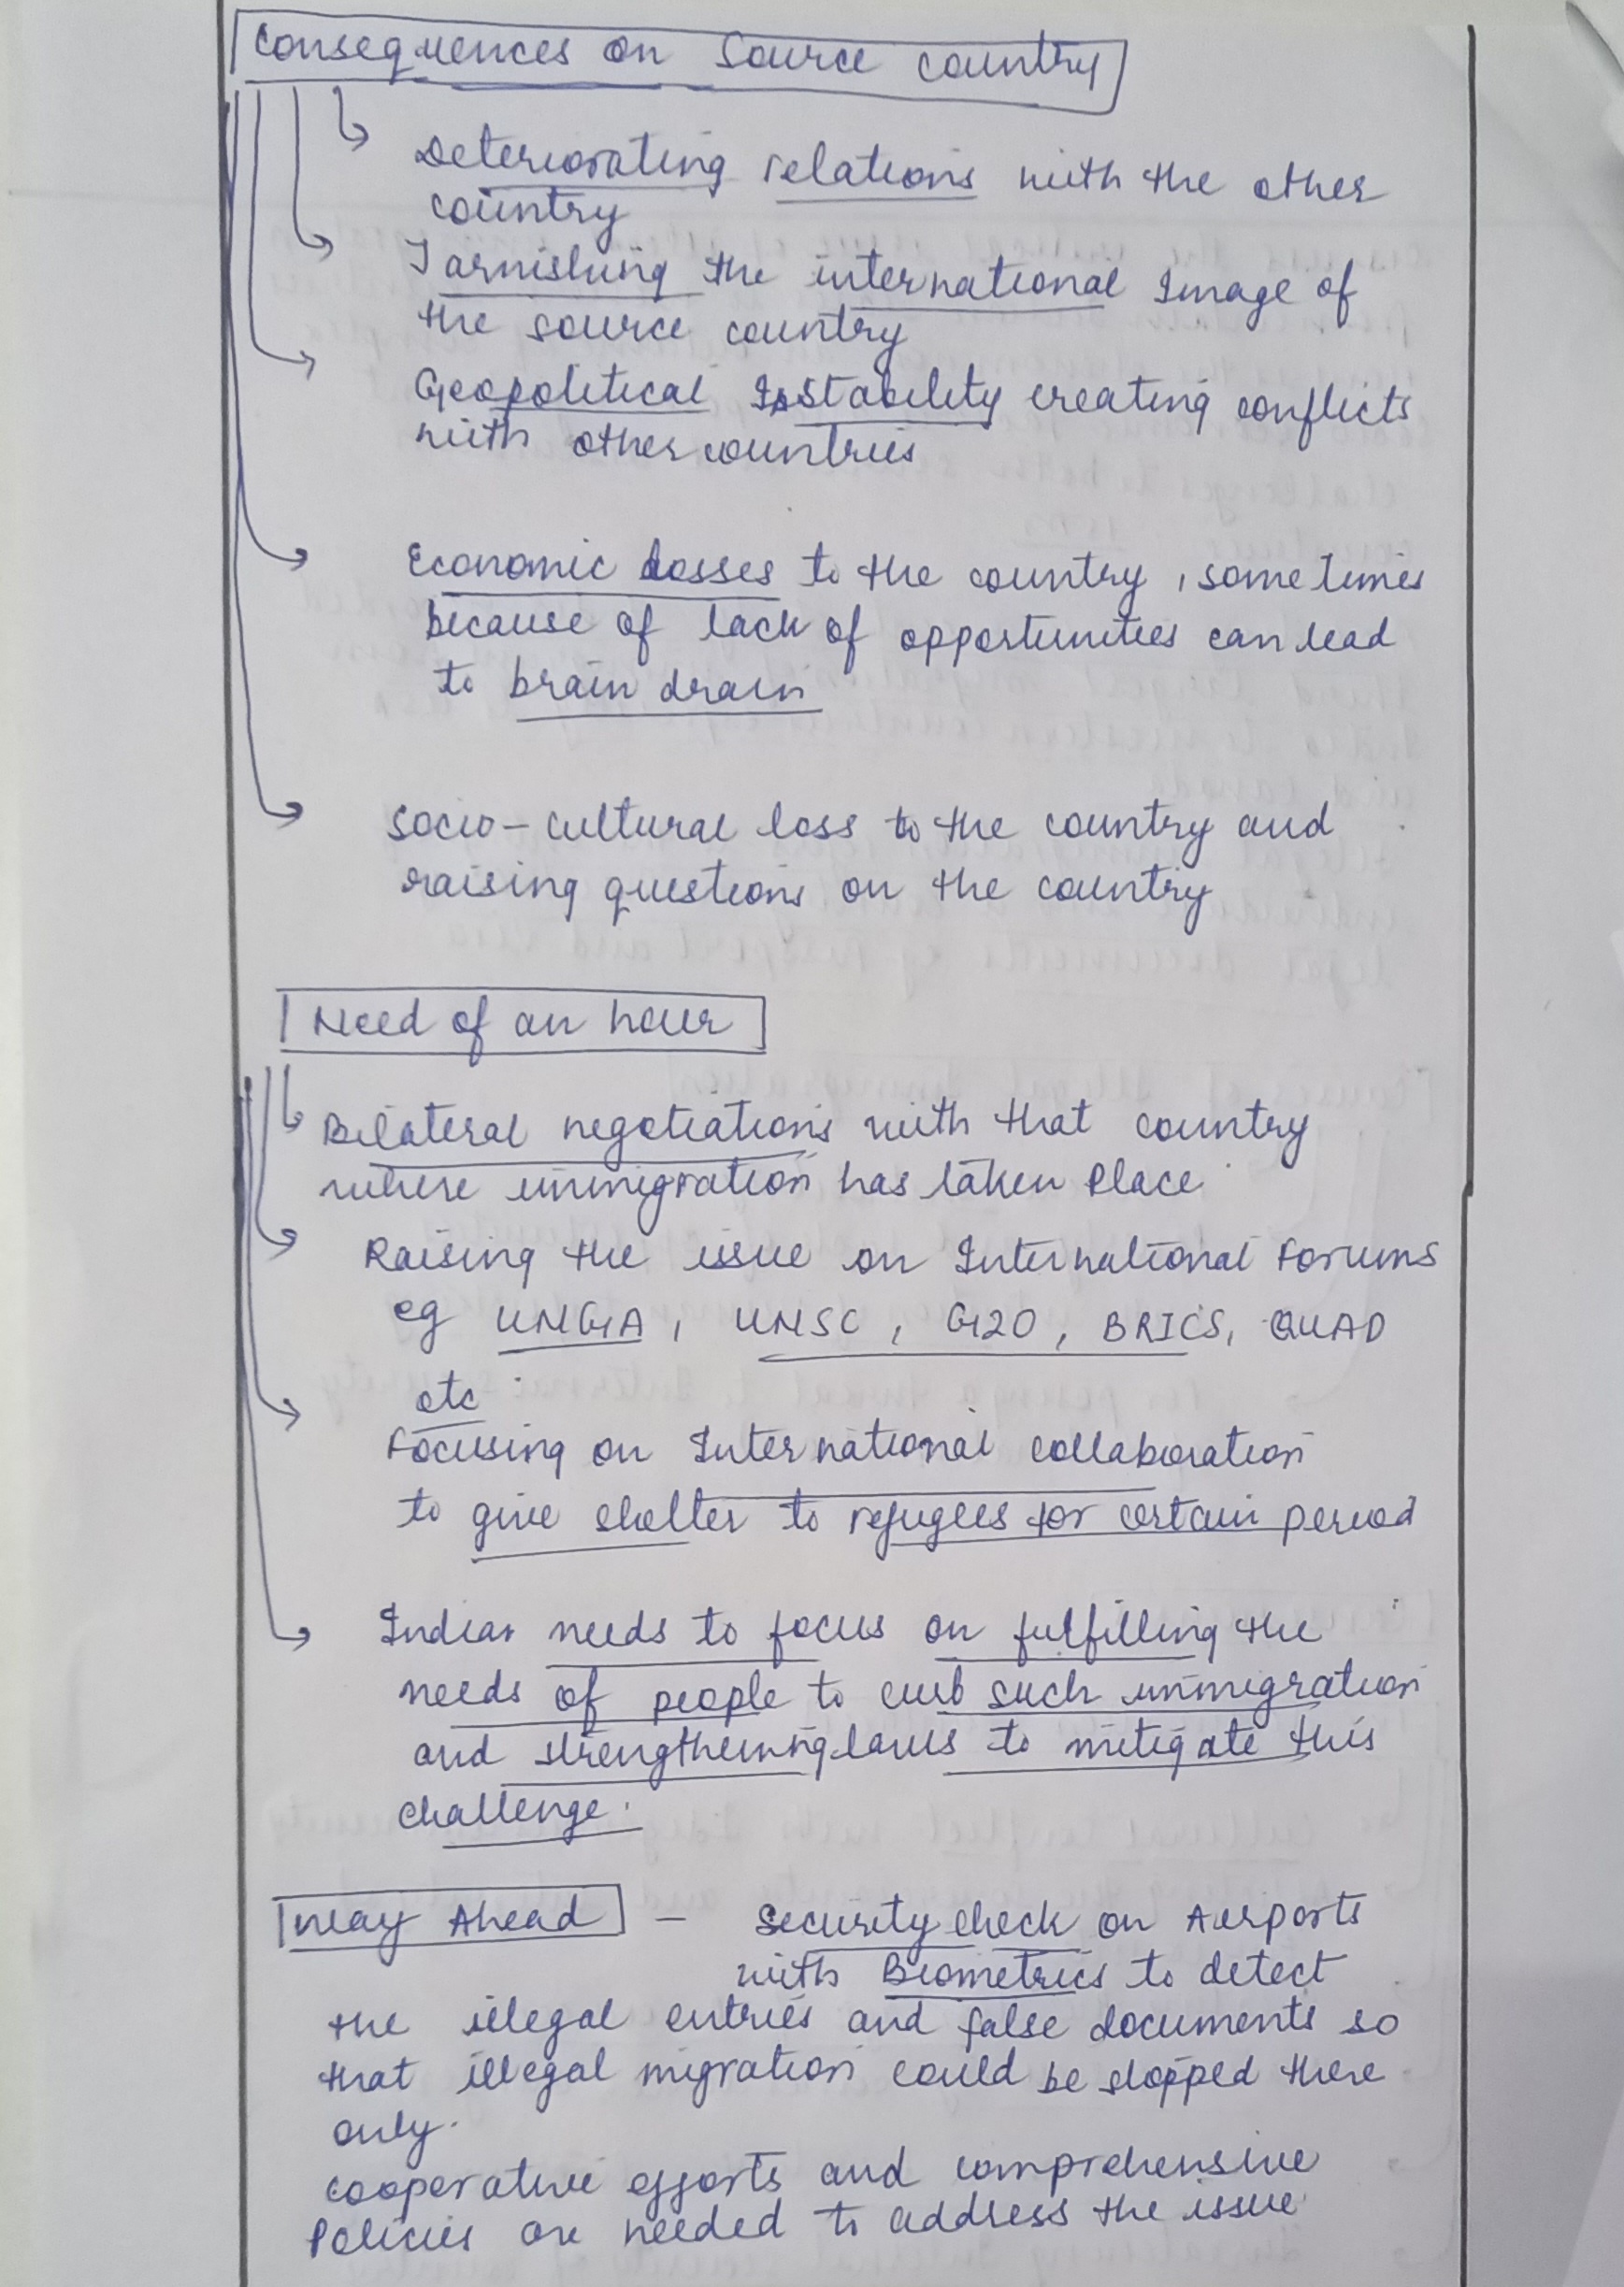 Consequences on Source country
Deteriorating relations with the other
country
Tarnishing the international Image of
the source country
Geopolitical Instability creating conflicts
with other countries
Economic losses to the country, sometimes
because of lack of opportunities can lead
to brain drain
Socio-cultural loss to the country and
raising questions on the country
Need of an hour
Bilateral negotiations with that country
where immigration has taken Place
Raising the issue on International Forums
eg UNGA, UNSC, G20, BRICS, QUAD
etc
Focusing on International collaboration
to give shelter to refugees for certain period
needs to focus on fulfilling the
needs of people to curb such immigration
and strengthening laws to mitigate this
challenge.
Way Ahead - Security check on Airports
with Biometrics to detect
the illegal entries and false documents so
that illegal migration could be stopped there
only.
cooperative efforts and comprehensive
Policies are needed to address the issue